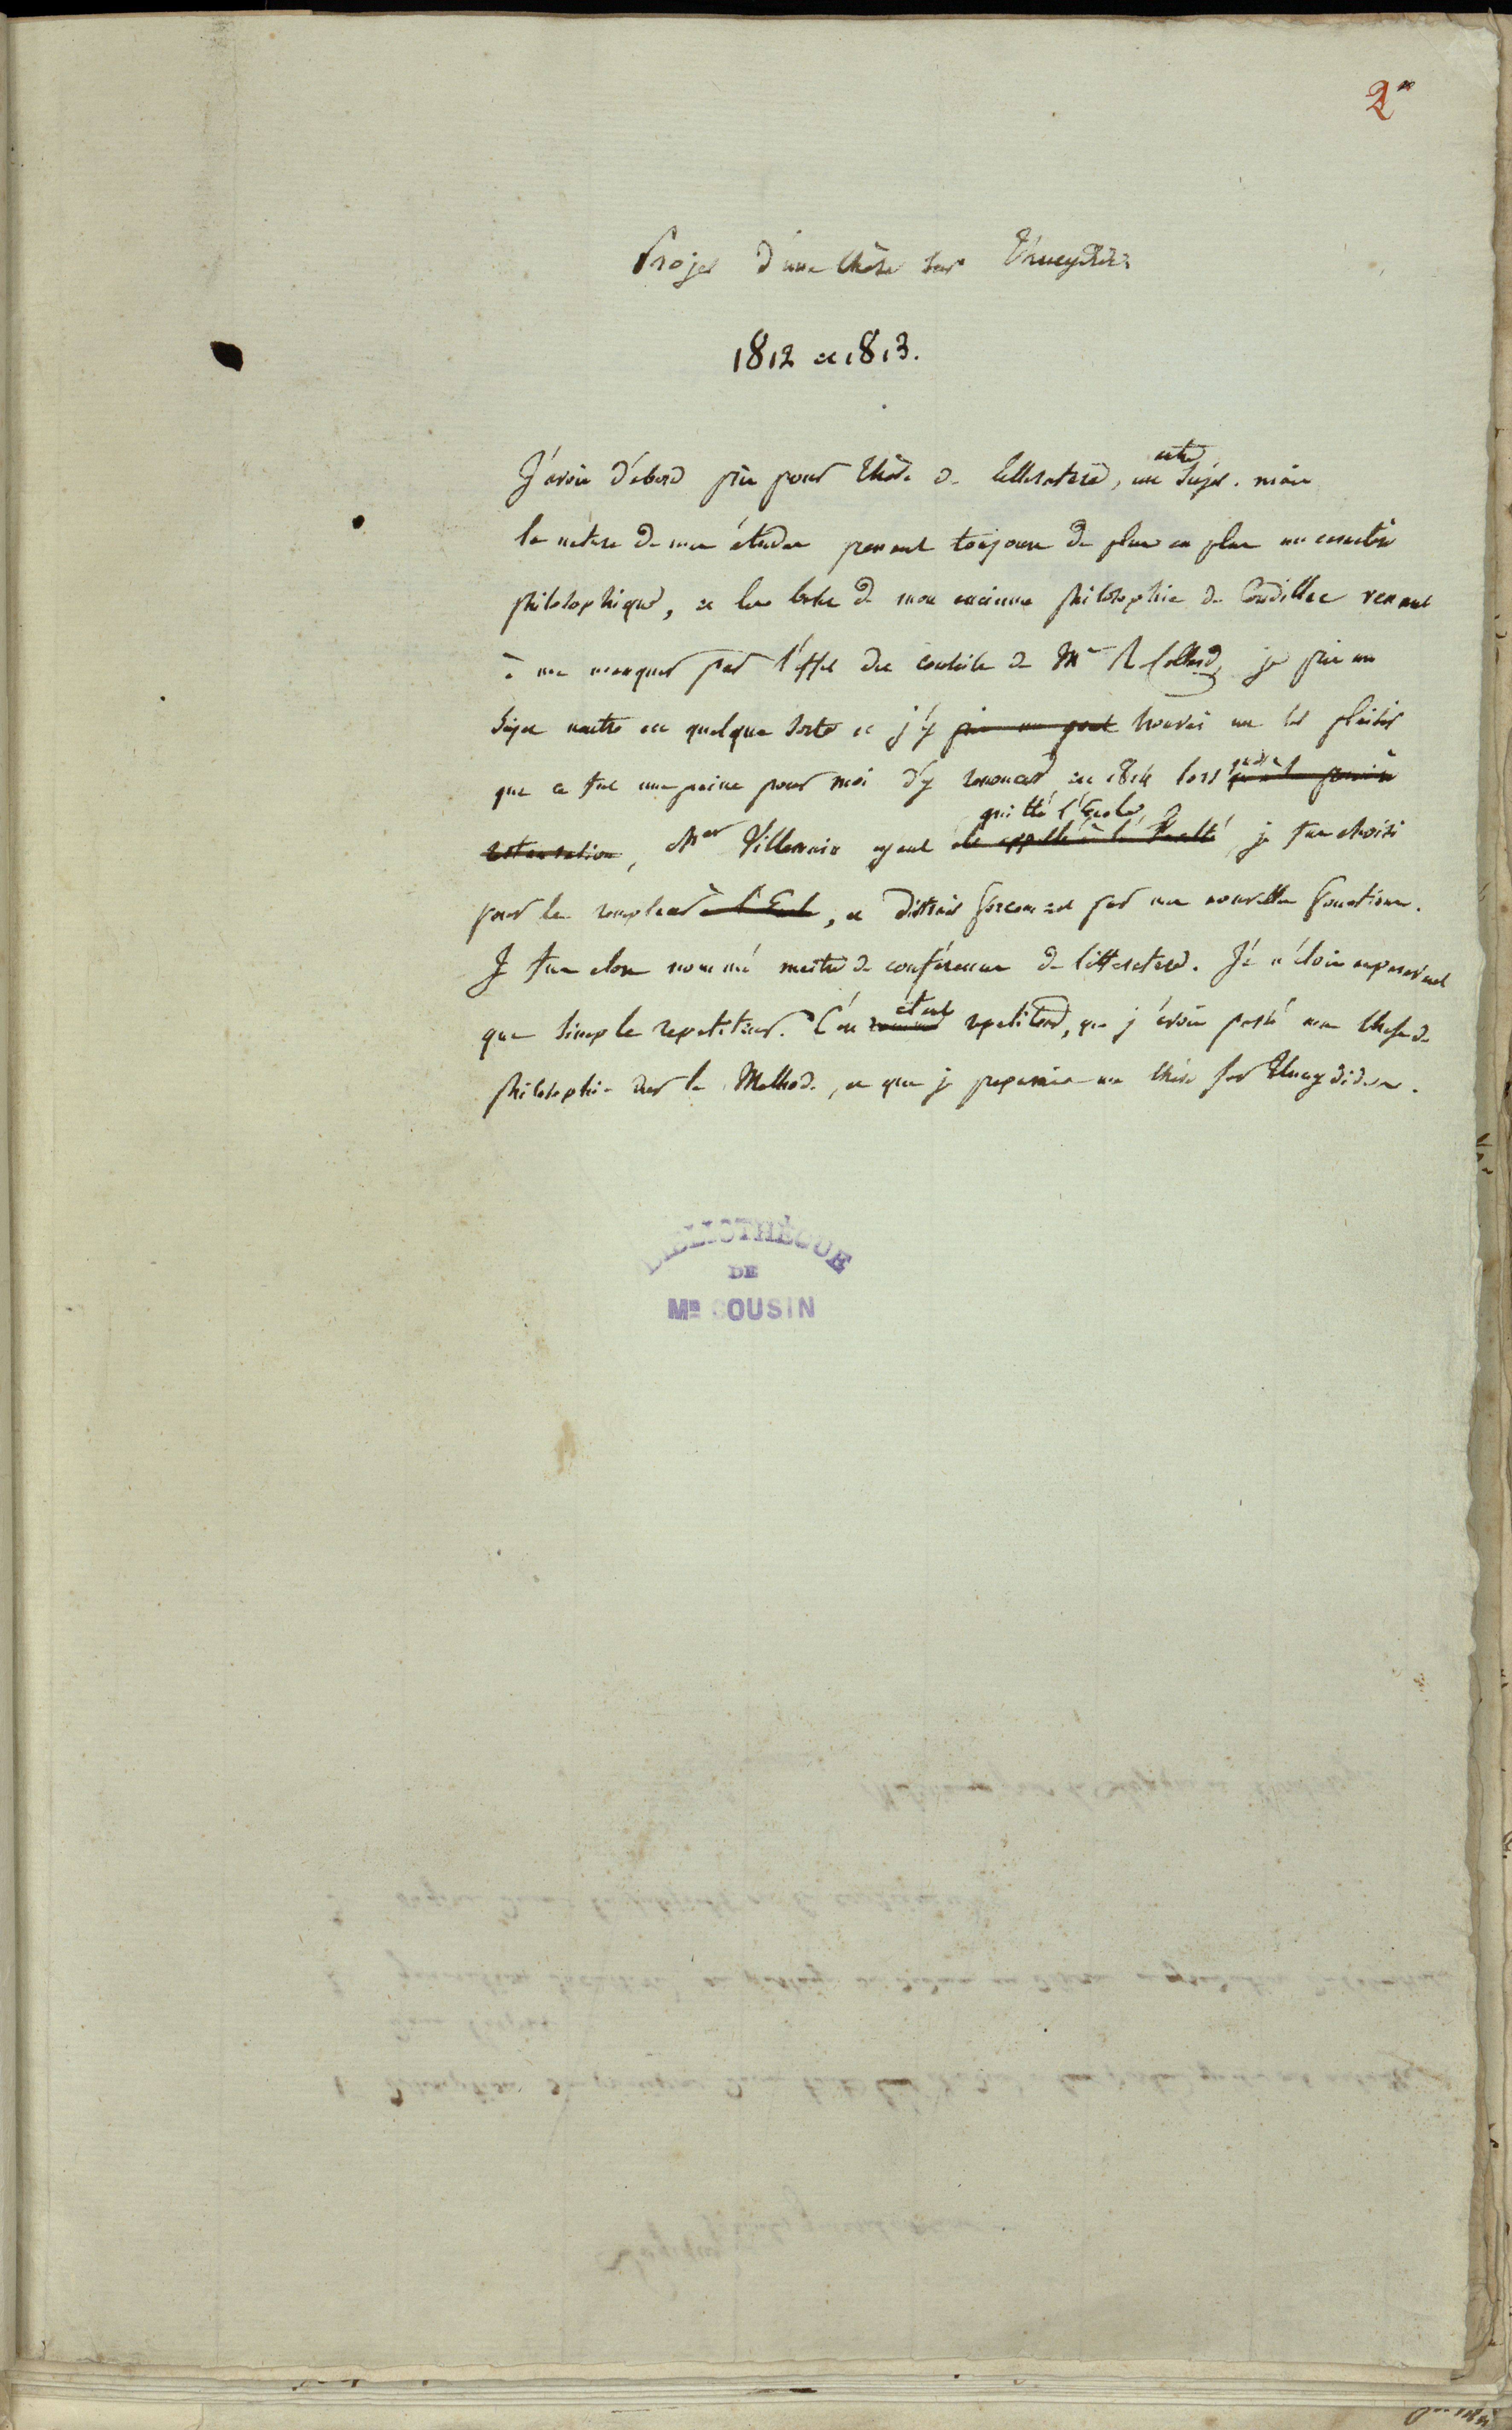 2
Projet d'une thèse sur Thucydide
1812 et 1813.
J'avois d'abord pris pour thèse de litterature, un autre sujet. mais
la nature de mes études prenant toujours de plus en plus un caractère
philosophique, et les bases de mon ancienne philosophie de Condillac venant
à me manquer par l'effet des conseils de Mr R. Collard, je pris un
sujet neutre en quelque sorte et j'y pris un gout trouvai un tel plaisir
que ce fut une peine pour moi d'y renoncer en 1814 lors
restauration, Mr Villemain ayant quitté l'Ecole, été appellé à la Faculté, je fus choisi
pour le remplacer à l'Ecole, et distrait forcement par mes nouvelles fonctions.
Je fus alors nommé maitre de conférences de litterature. Je n'étois auparavant
que simple repetiteur. C'est étant repetiteur, que j'avois passé ma these de
philosophie sur la Methode, et que je preparais ma thèse sur Thucydide.
BIBLIOTHÈQUE
DE
MR COUSIN